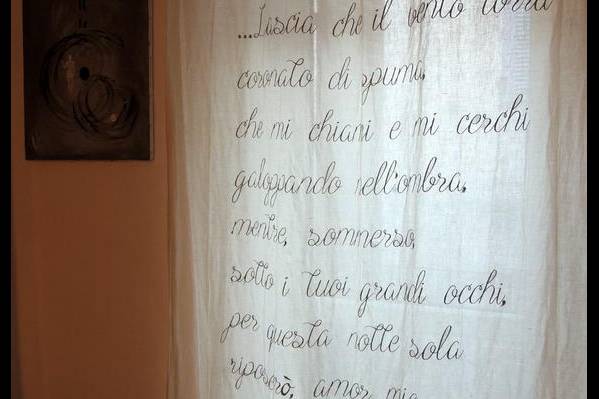 ...Lascia che il vento corra
coronato di spuma,
che mi chiami e mi cerchi
galoppando nell'ombra,
mentre, sommerso,
sotto i tuoi grandi occhi,
per questa notte sola
riposerò, amor mio